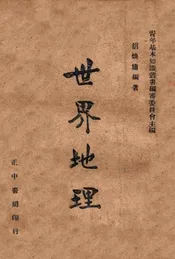 青年基本知識叢書編審委員會主編
胡煥庸編著
世界地理
正中書局印行